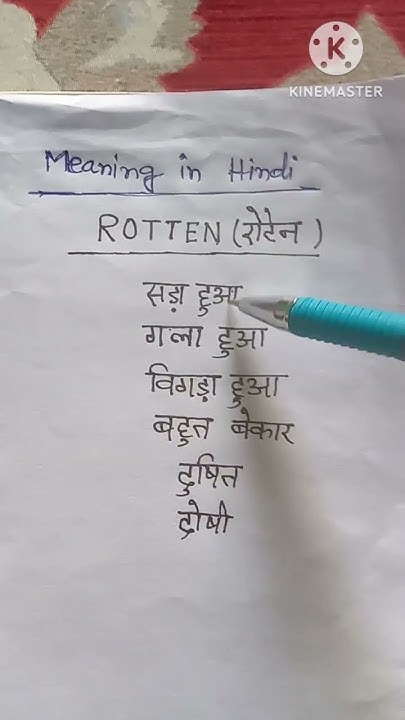 KINEMASTER
Meaning in Hindi
ROTTEN (रोटैन)
सड़ा हुआ
गला हुआ
विगड़ा हुआ
बहुत बेकार
दुषित
द्रोषी